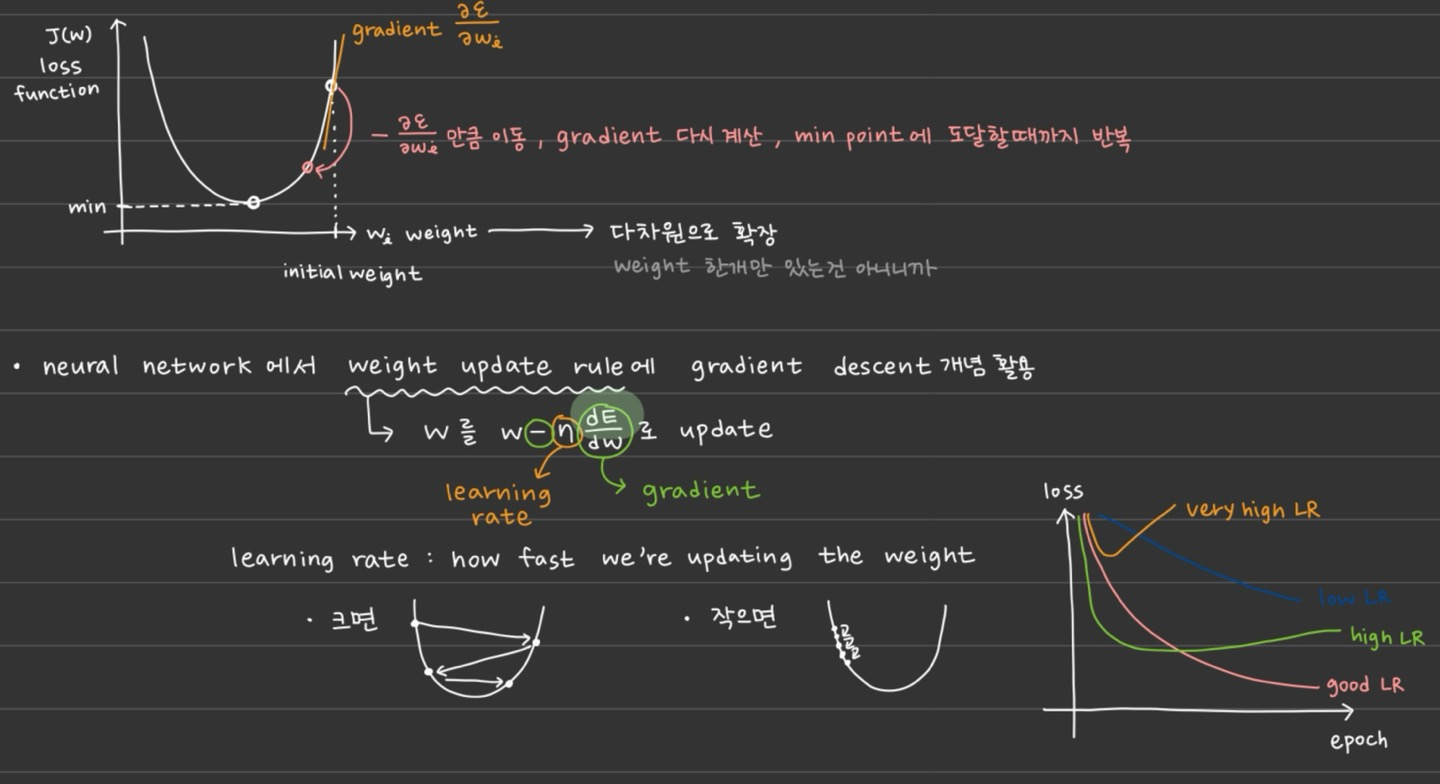 J(w)
loss
function
gradient ∂ε/∂wᵢ
- ∂ε/∂wᵢ 만큼 이동, gradient 다시 계산, min point에 도달할때까지 반복
min
wᵢ weight → 다차원으로 확장
initial weight
weight 한개만 있는건 아니니까
• neural network에서 weight update rule에 gradient descent 개념 활용
↳ w를 w-η dE/dw로 update
learning
rate
gradient
learning rate : how fast we're updating the weight
• 크면
• 작으면
loss
very high LR
low LR
high LR
good LR
epoch